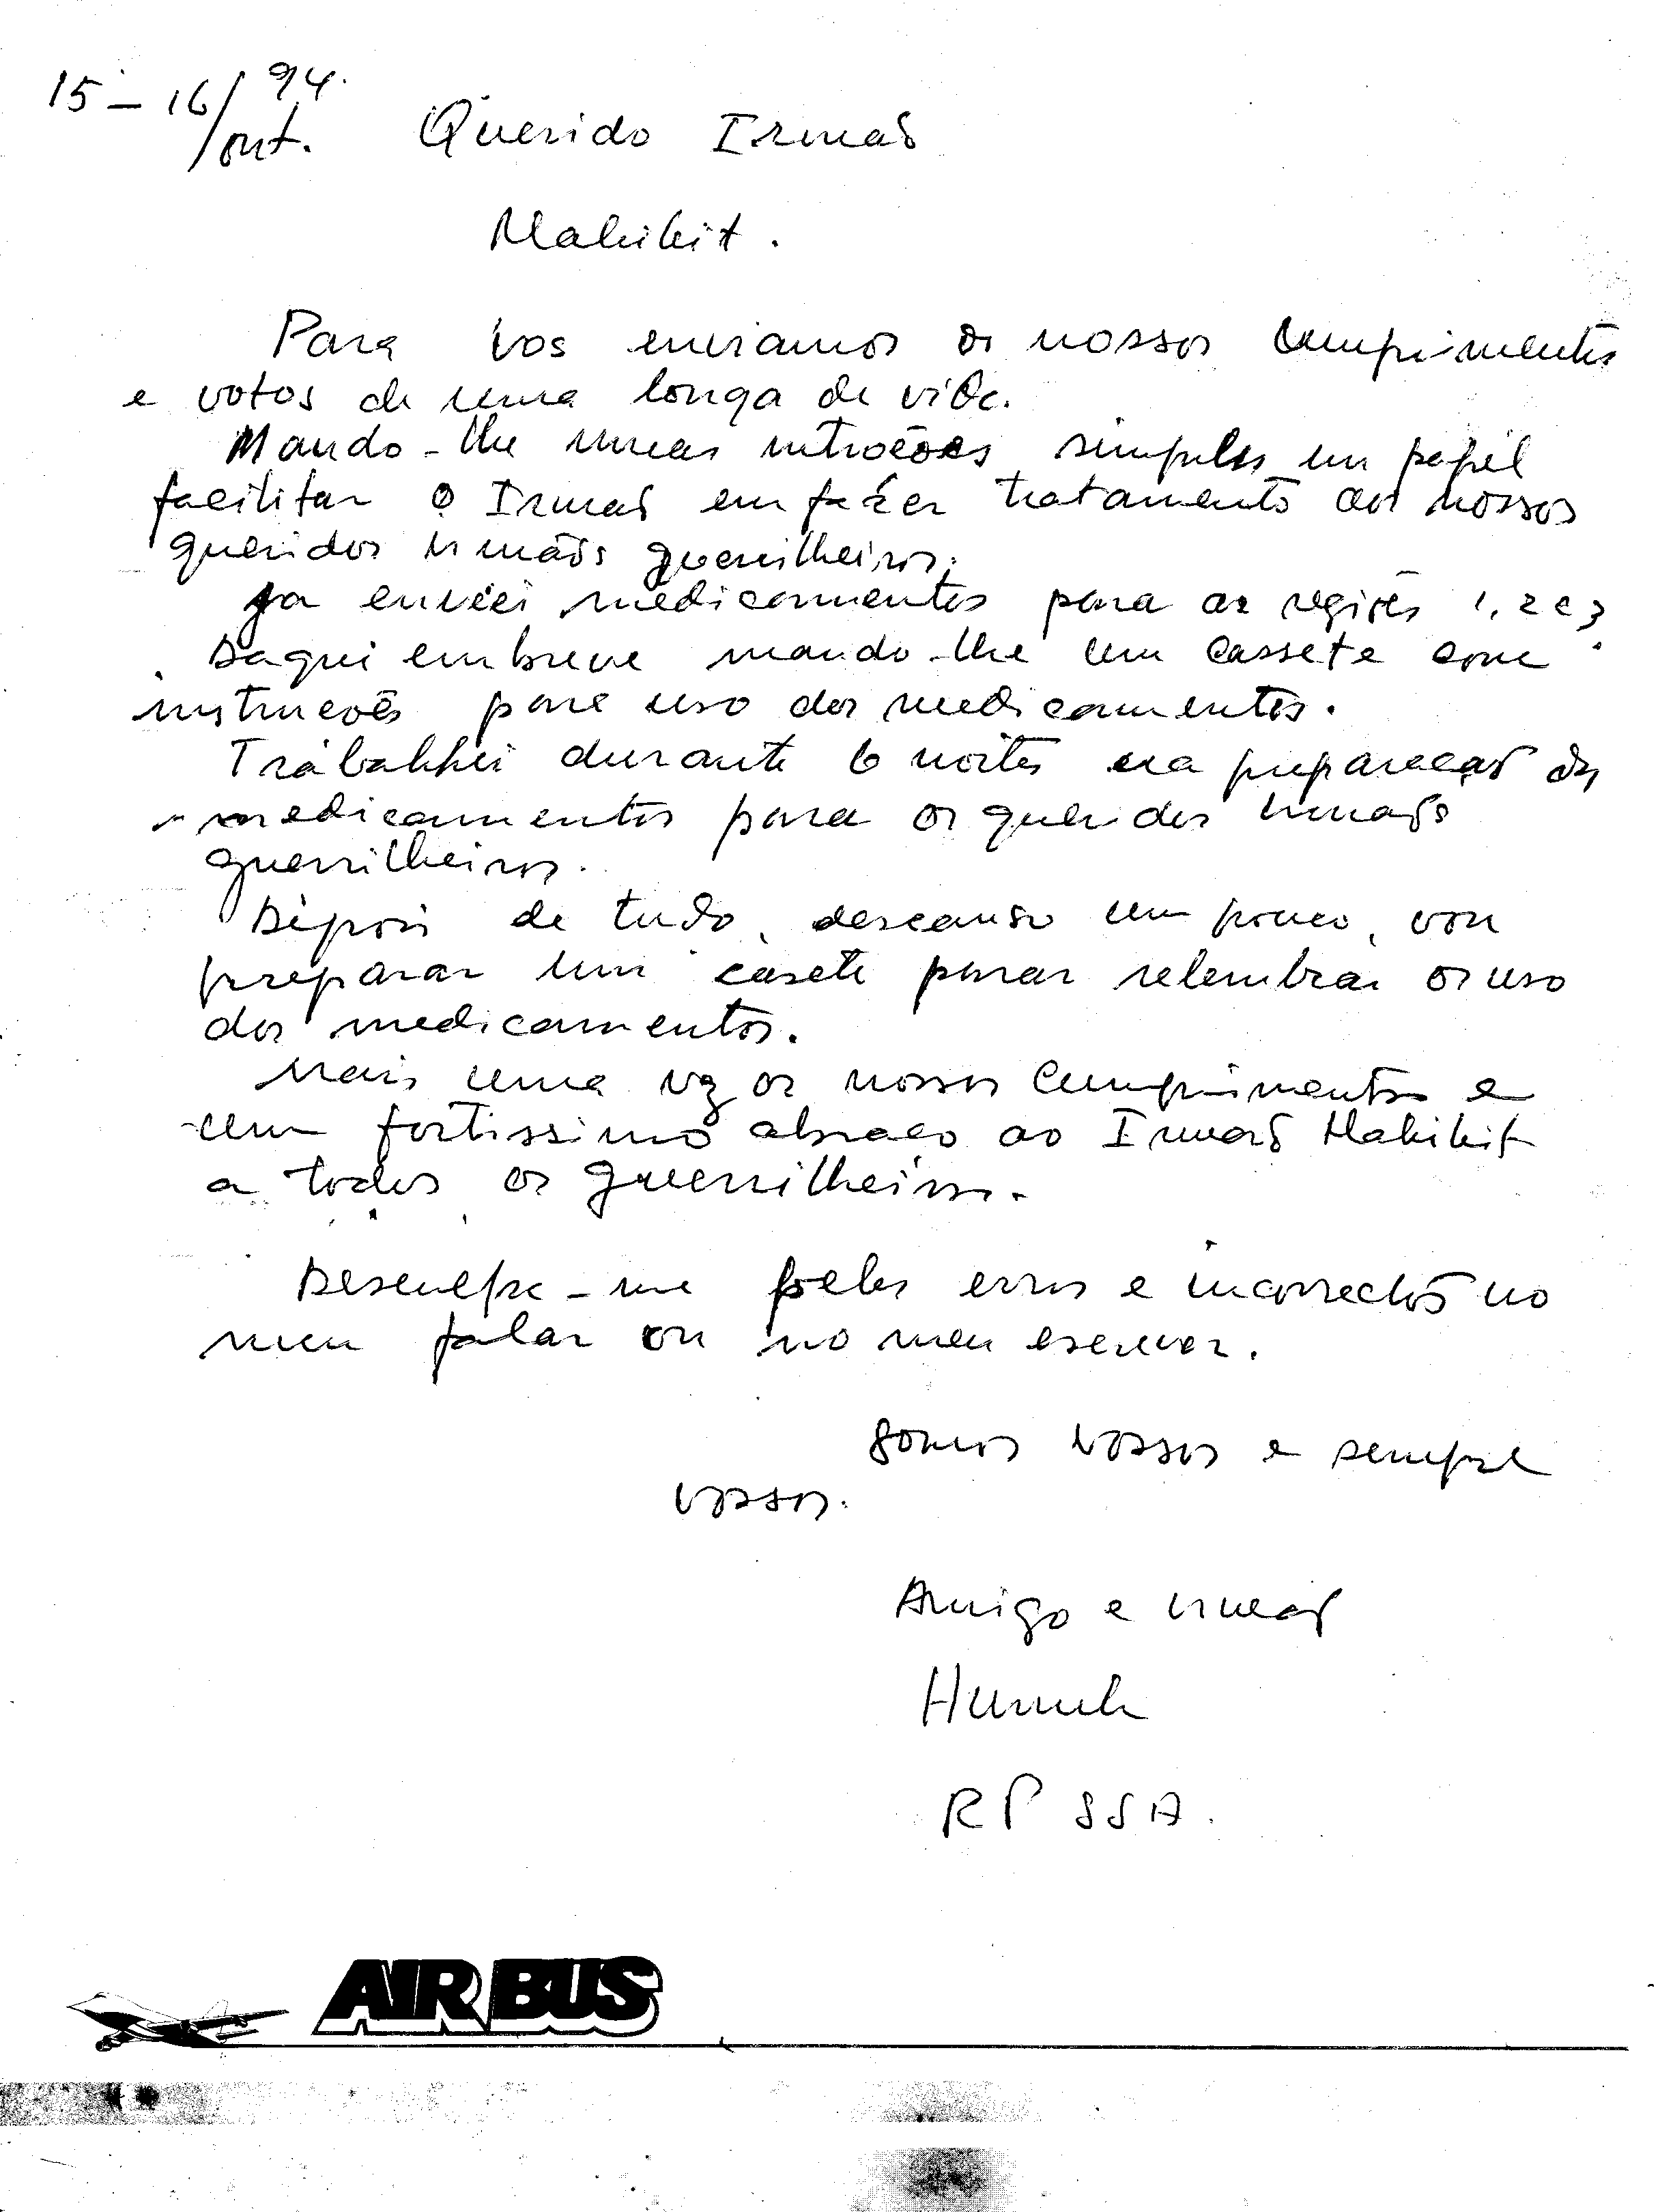 15-16/out. 94.
Querido Irmaõ
Mahihit.
Para vos enviamos os nossos cumprimentos
e votos de uma longa de vida.
Mando-lhe umas
simples em papél
facilitar o Irmaõ em fazer tratamento aos nossos
queridos irmaõs guerrilheiros.
Ja enviei medicamentos para as regiões 1, 2 e 3.
Daqui embreve mando-lhe um cassete com
instrucoẽs para uso dos medicamentos.
Trabalhei durante 6 noites na preparacaõ dos
medicamentos para os queridos irmaõs
guerrilheiros.
Dépois de tudo, descanso um pouco, vou
preparar um casete parar relembrar os uso
dos medicamentos.
Mais uma vez os nossos cumprimentos e
um fortissimo abraco ao Irmaõ Mahihit
a todos os guerrilheiros.
Desculpa-me pelos erros e incorrectos no
meu falar ou no meu escrever.
Somos vossos e sempre
vossos.
Amigo e irmaõ
RP SSA.
AIRBUS